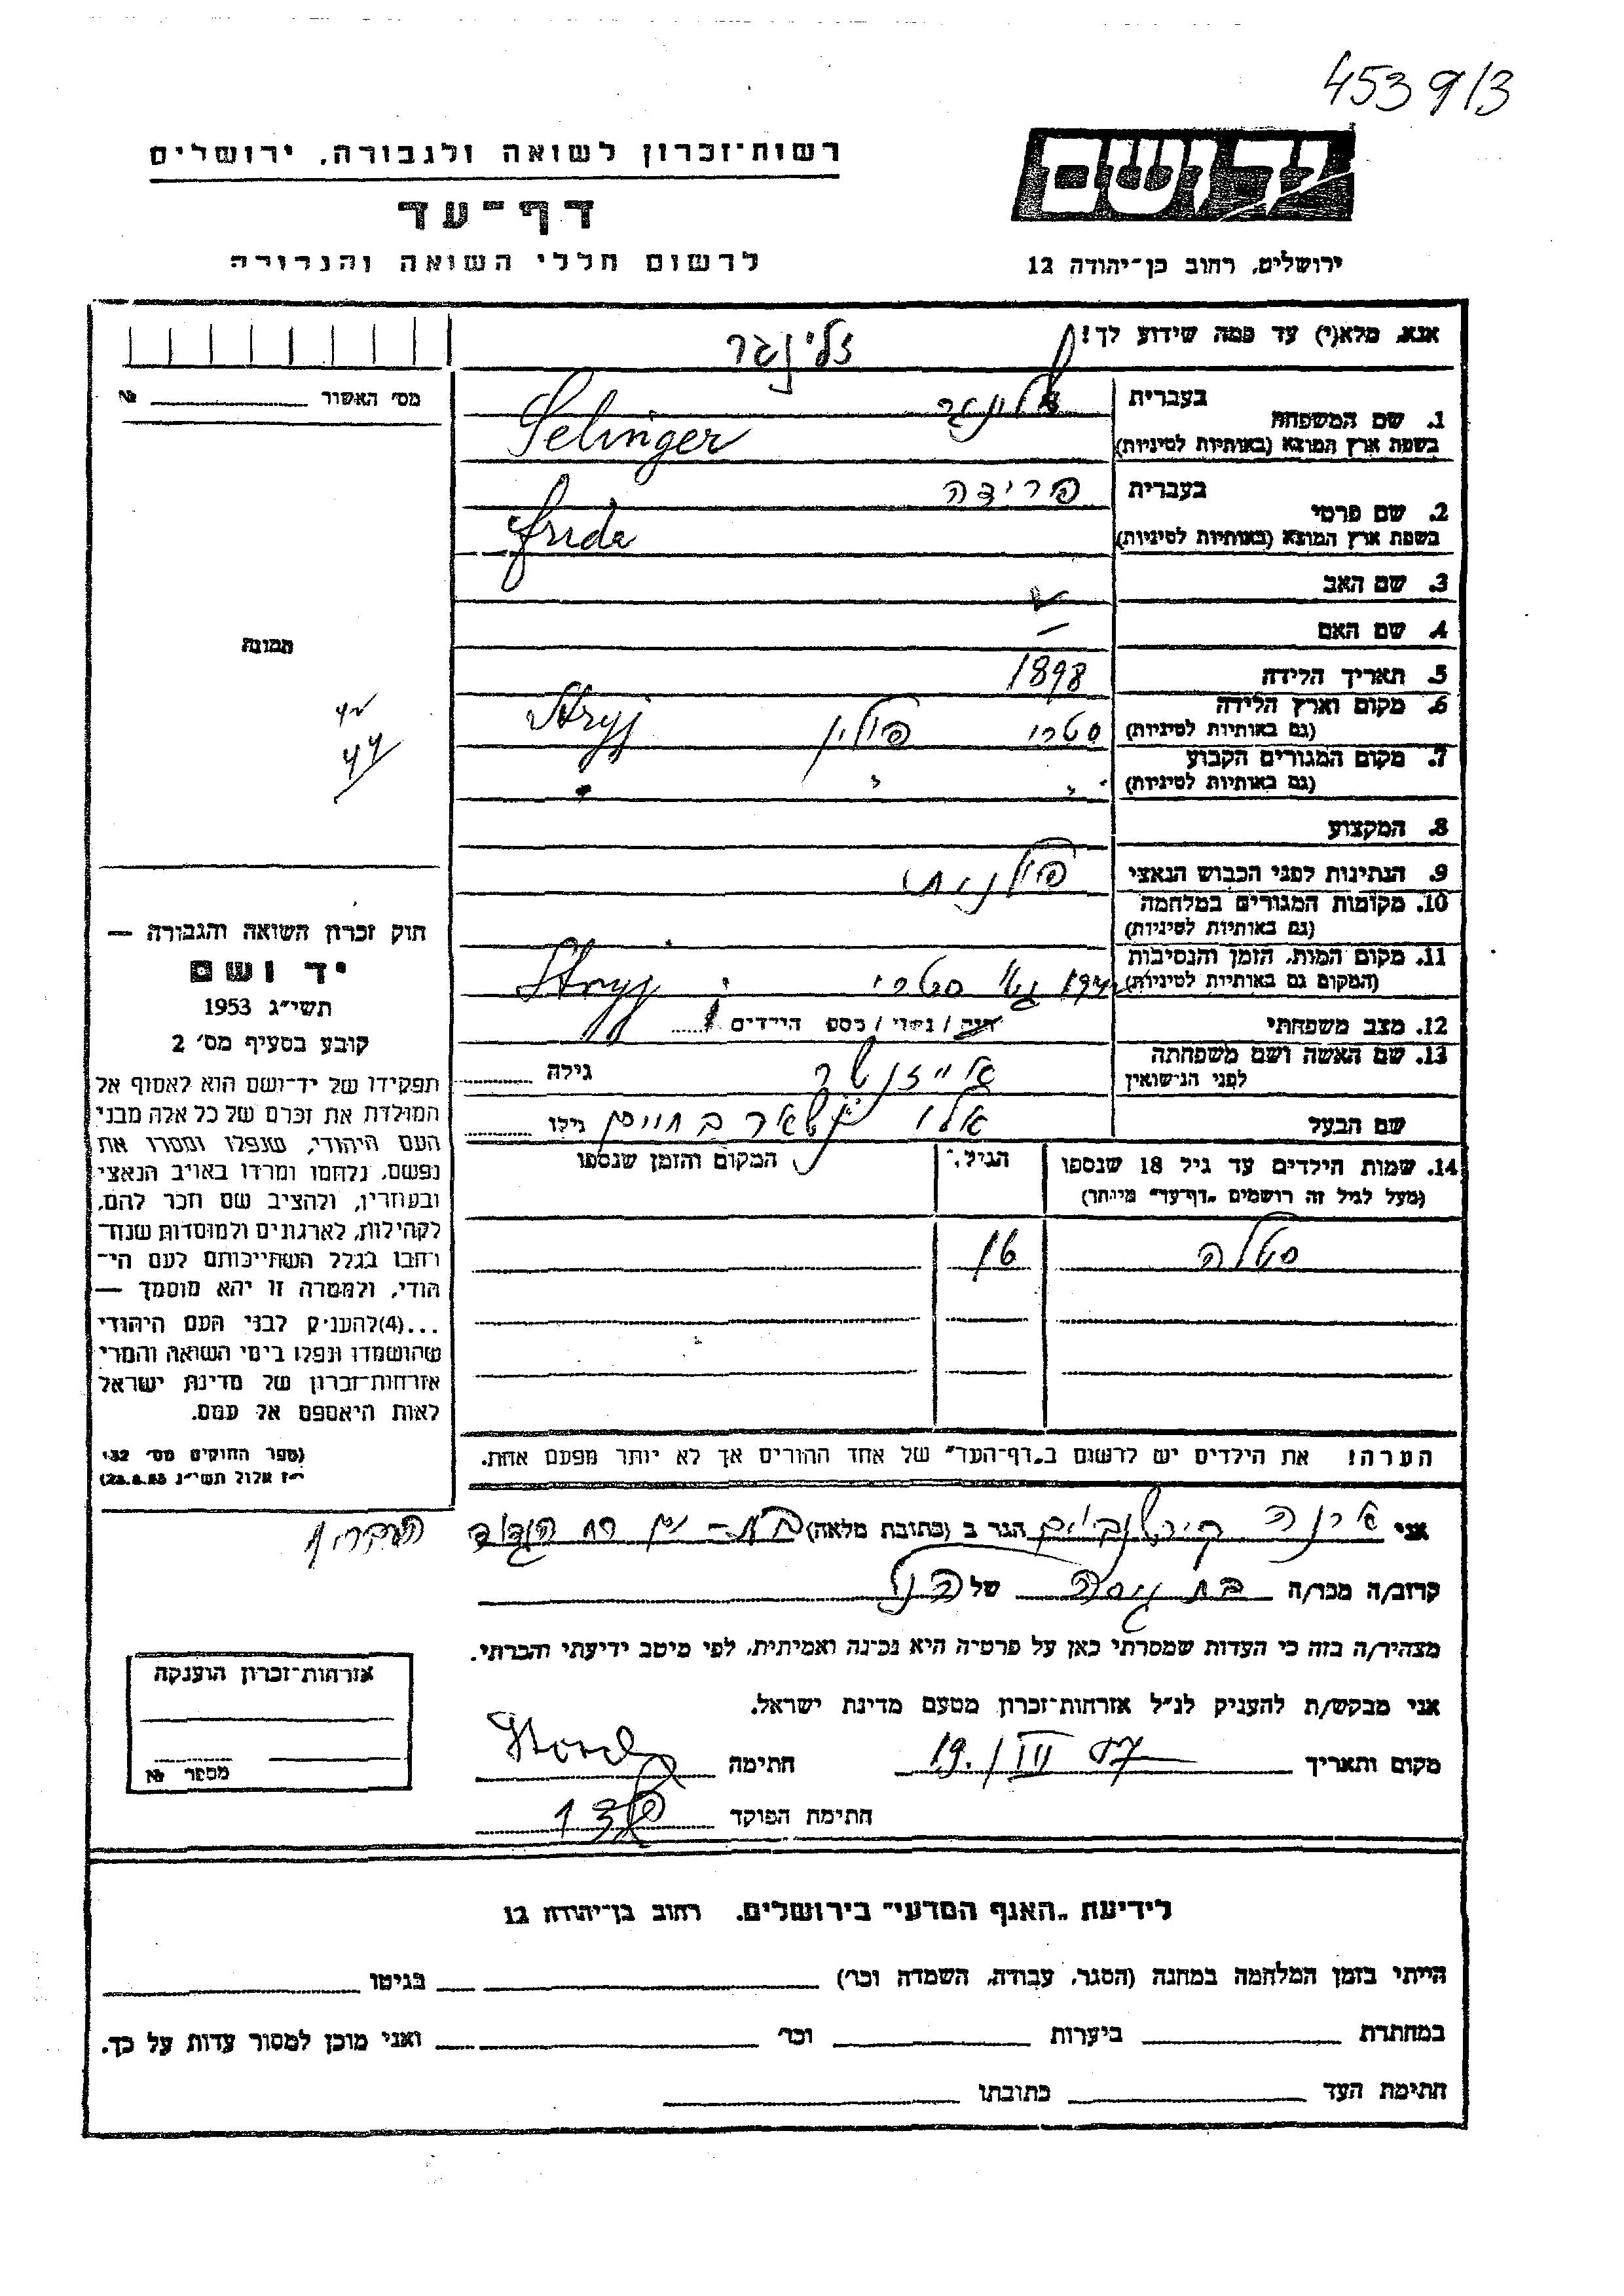 4539/3
רשות־זכרון לשואה ולגבורה, ירושלים
דף־עד
לרשום חללי השואה והגבורה
ירושלים, רחוב בן־יהודה 12
אנא, מלא(י) עד כמה שידוע לך!
זלינגר
מס׳ האשור № 
1. שם המשפחה בעברית זלינגר
בשפת ארץ המוצא (באותיות לטיניות) Selinger
2. שם פרטי בעברית פרידה
בשפת ארץ המוצא (באותיות לטיניות) Frida
3. שם האב
4. שם האם
5. תאריך הלידה 1898
6. מקום וארץ הלידה
(גם באותיות לטיניות) סטרי פולין Stryj
7. מקום המגורים הקבוע
(גם באותיות לטיניות) " " "
8. המקצוע
9. הנתינות לפני הכבוש הנאצי פולנית
10. מקומות המגורים במלחמה
(גם באותיות לטיניות)
11. מקום המות, הזמן והנסיבות
(המקום גם באותיות לטיניות) סטרי Stryj
12. מצב משפחתי רוק / נשוי / מספר הילדים 1
13. שם האשה ושם משפחתה
לפני הנישואין גילה
שם הבעל נשאר בחיים גילו
14. שמות הילדים עד גיל 18 שנספו
(מעל לגיל זה רושמים „דף־עד״ מיוחד)
הגיל המקום והזמן שנספו
סלה 16
הערה! את הילדים יש לרשום ב„דף־העד״ של אחד ההורים אך לא יותר מפעם אחת.
תמונה
44
חוק זכרון השואה והגבורה —
יד ושם
תשי״ג 1953
קובע בסעיף מס׳ 2
תפקידו של יד־ושם הוא לאסוף אל
המולדת את זכרם של כל אלה מבני
העם היהודי, שנפלו ומסרו את
נפשם, נלחמו ומרדו באויב הנאצי
ובעוזריו, ולהציב שם וזכר להם,
לקהילות, לארגונים ולמוסדות שנח־
רבו בגלל השתייכותם לעם הי־
הודי, ולמטרה זו יהא מוסמך —
...(4) להעניק לבני העם היהודי
שהושמדו ונפלו בימי השואה והמרי
אזרחות־זכרון של מדינת ישראל
לאות היאספם אל עמם.
(ספר החוקים מס׳ 132
י״ז אלול תשי״ג 28.8.53)
אני הגר ב (כתובת מלאה) בת-ים רח הגדוד העברי 9
קרוב/ה מכר/ה בת גיסה של הנ"ל
מצהיר/ה בזה כי העדות שמסרתי כאן על פרטיה היא נכונה ואמיתית, לפי מיטב ידיעתי והכרתי.
אני מבקש/ת להעניק לנ״ל אזרחות־זכרון מטעם מדינת ישראל.
מקום ותאריך 19./III 57 חתימה
חתימת הפוקד
אזרחות־זכרון הוענקה
מספר №
לידיעת „האגף המדעי״ בירושלים, רחוב בן־יהודה 12
הייתי בזמן המלחמה במחנה (הסגר, עבודה, השמדה וכו׳) בגיטו
במחתרת ביערות וכו׳ ואני מוכן למסור עדות על כך.
חתימת העד כתובתו